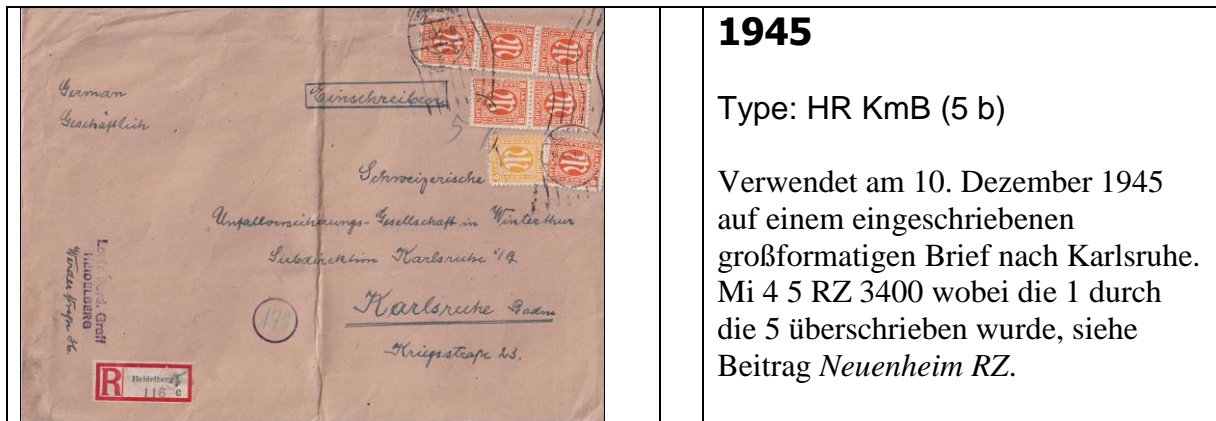 German
Geschäftlich
Einschreiben
5
Schweizerische
Unfallversicherungs-Gesellschaft in Winterthur
Subdirektion Karlsruhe i/B
Karlsruhe Baden
Kriegsstraße 23.
Graff
HEIDELBERG
Werderstraße 36.
R
Heidelberg
116 c
1945
Type: HR KmB (5 b)
Verwendet am 10. Dezember 1945
auf einem eingeschriebenen
großformatigen Brief nach Karlsruhe.
Mi 4 5 RZ 3400 wobei die 1 durch
die 5 überschrieben wurde, siehe
Beitrag Neuenheim RZ.